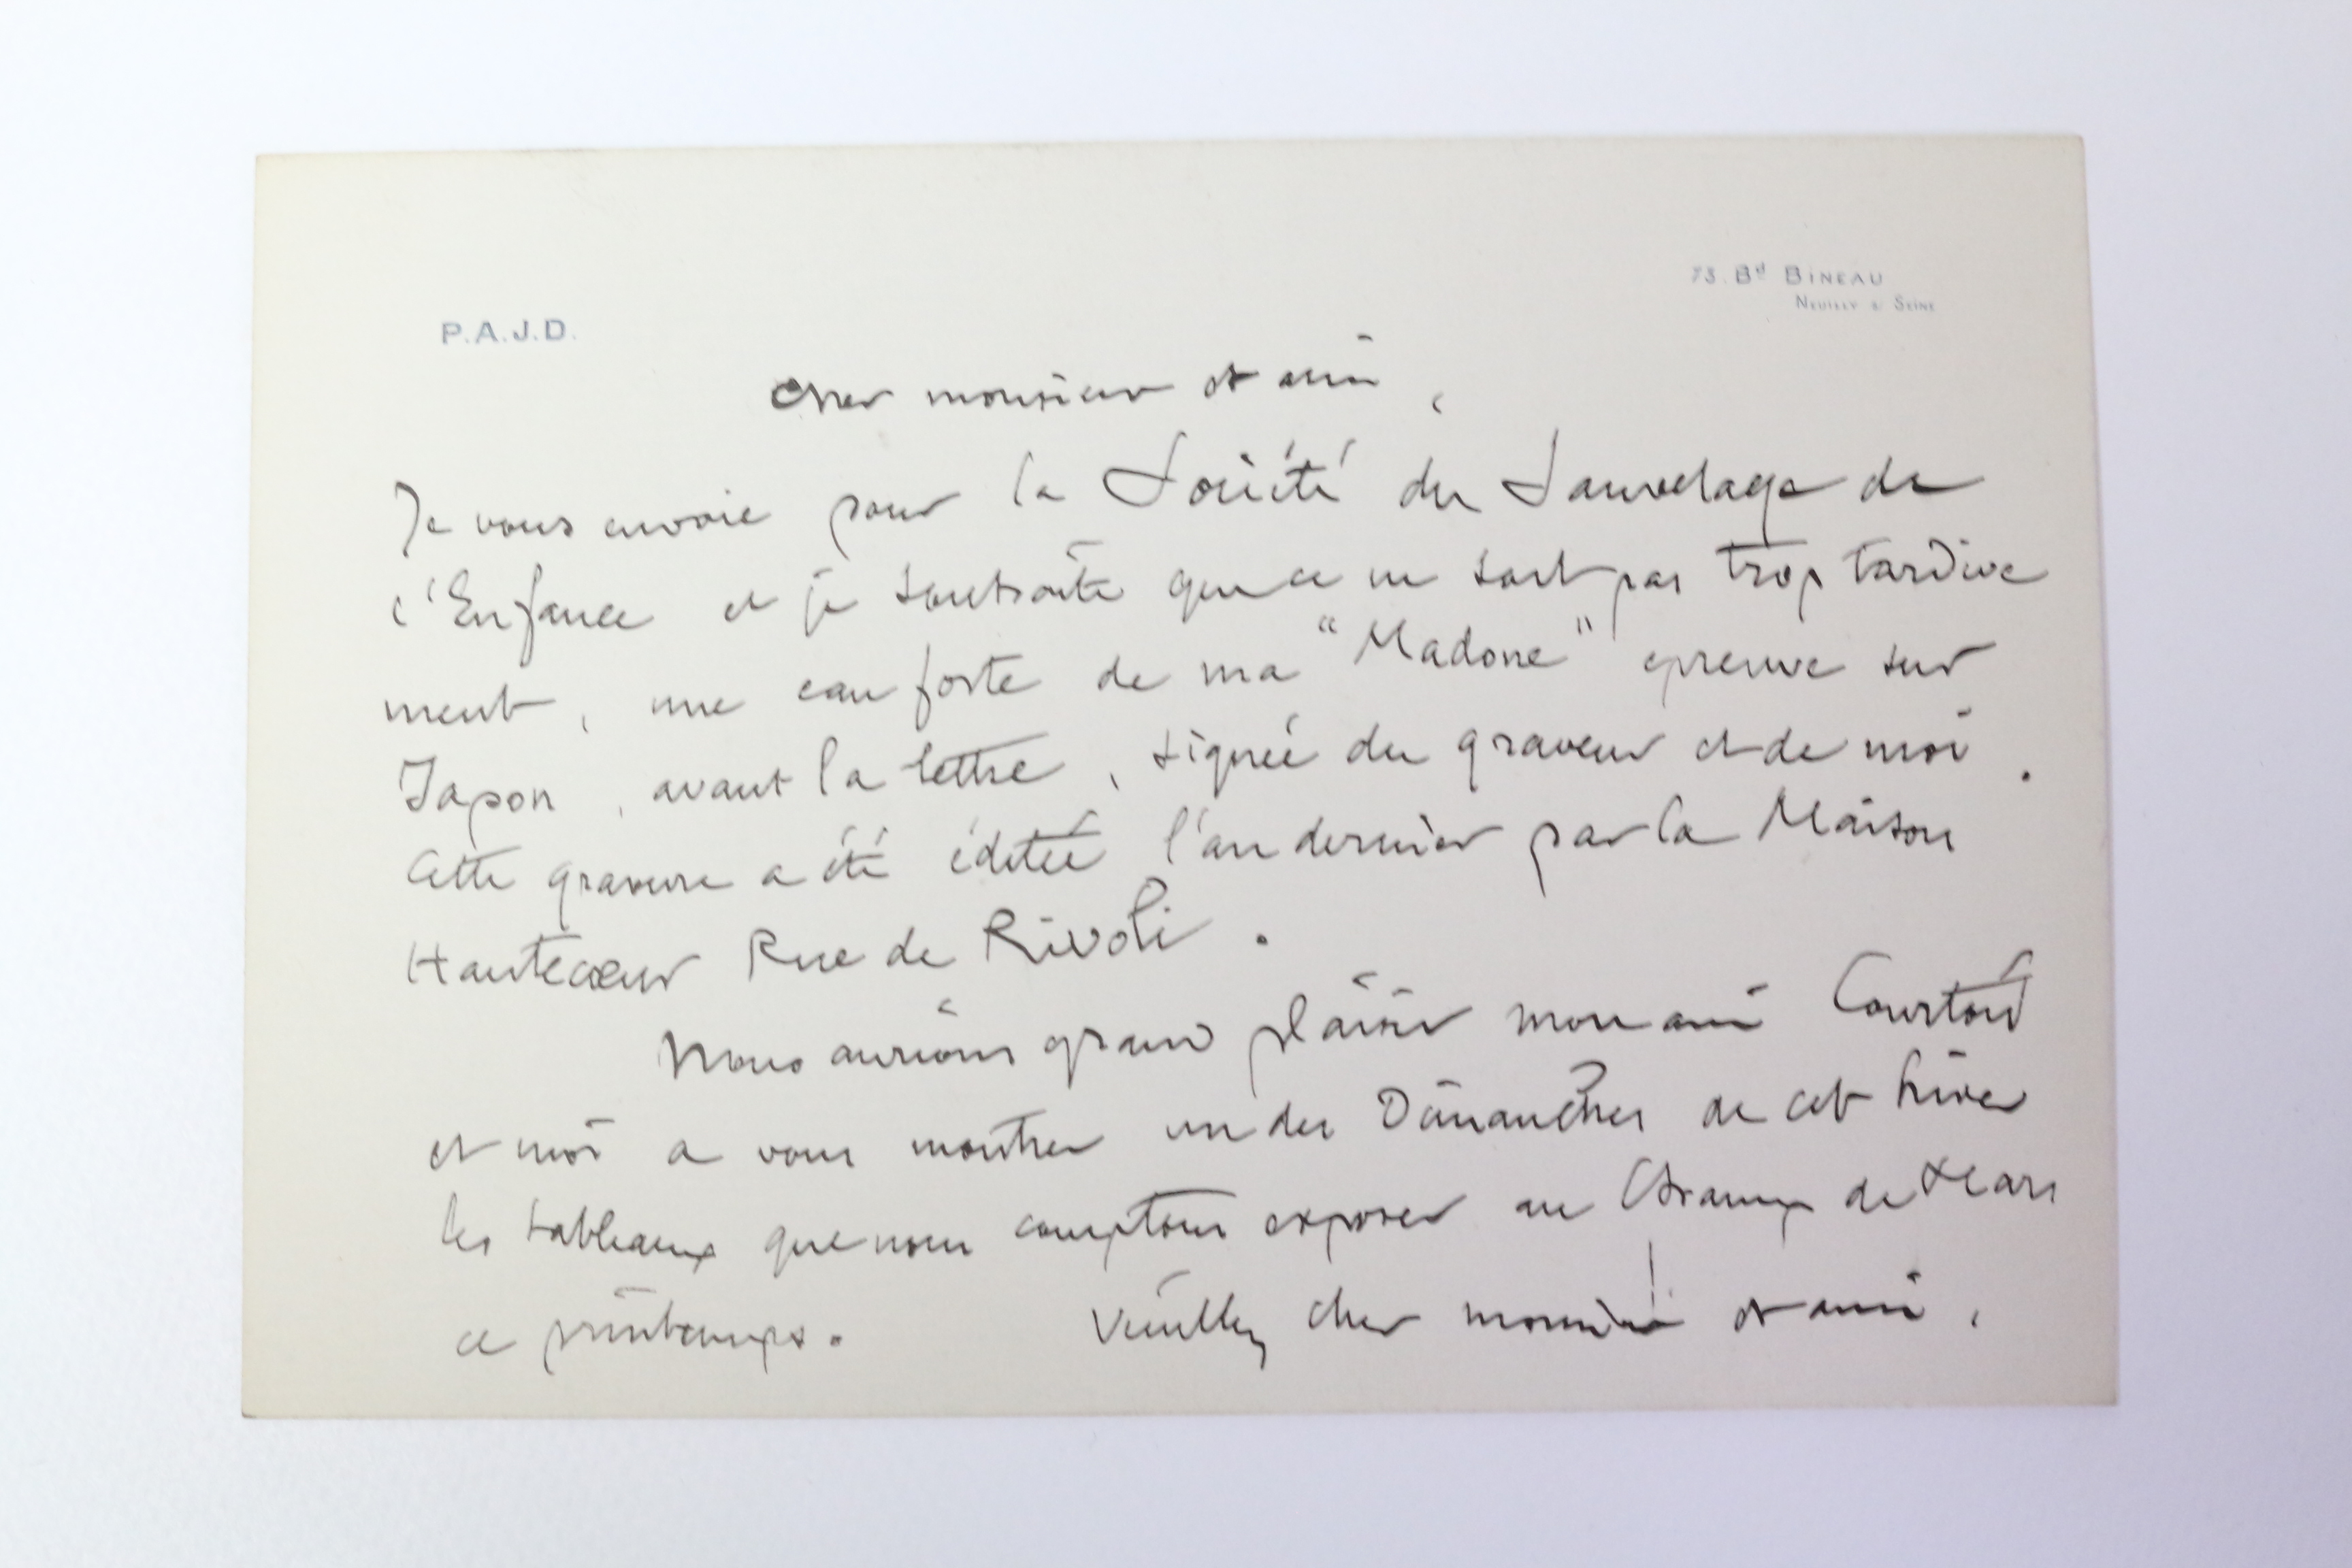 73. Bd BINEAU
NEUILLY s/ SEINE
P.A.J.D.
Cher monsieur et ami,
Je vous envoie pour la Société du Sauvetage de
l'Enfance et je souhaite que ce ne soit pas trop tardive
ment, une eau forte de ma "Madone" epreuve sur
Japon, avant la lettre, signée du graveur et de moi.
Cette gravure a été éditée l'an dernier par la Maison
Hautecoeur Rue de Rivoli.
Nous aurions grand plaisir mon ami Courtois
et moi a vous montrer un des Dimanches de cet hiver
les tableaux que nous comptons exposer au Champ de Mars
ce printemps. Veuillez cher monsieur et ami,